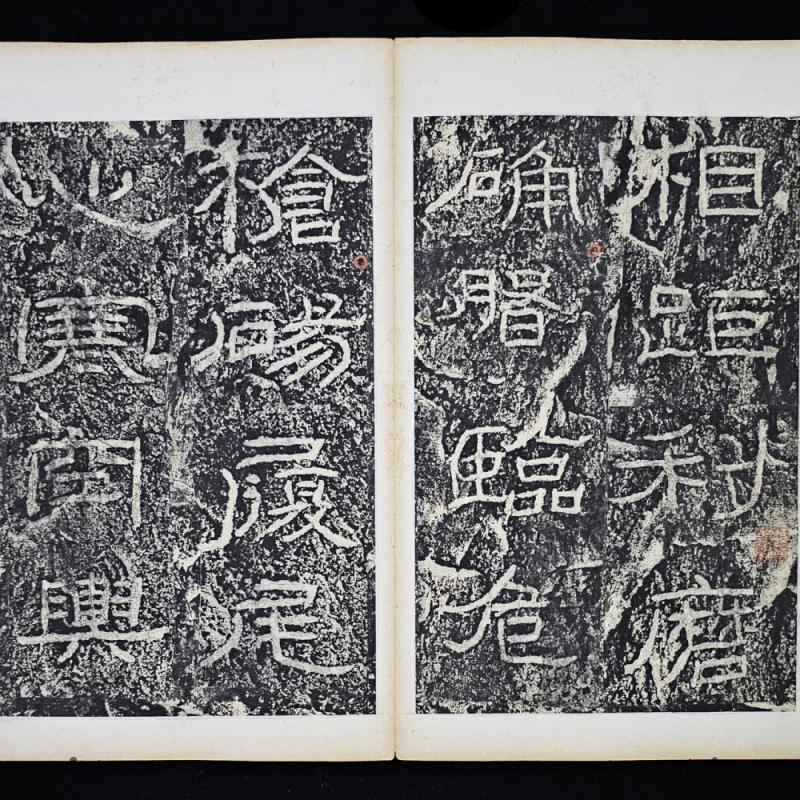 相距利磨
确磐臨危
槍碭履尾
心寒空輿